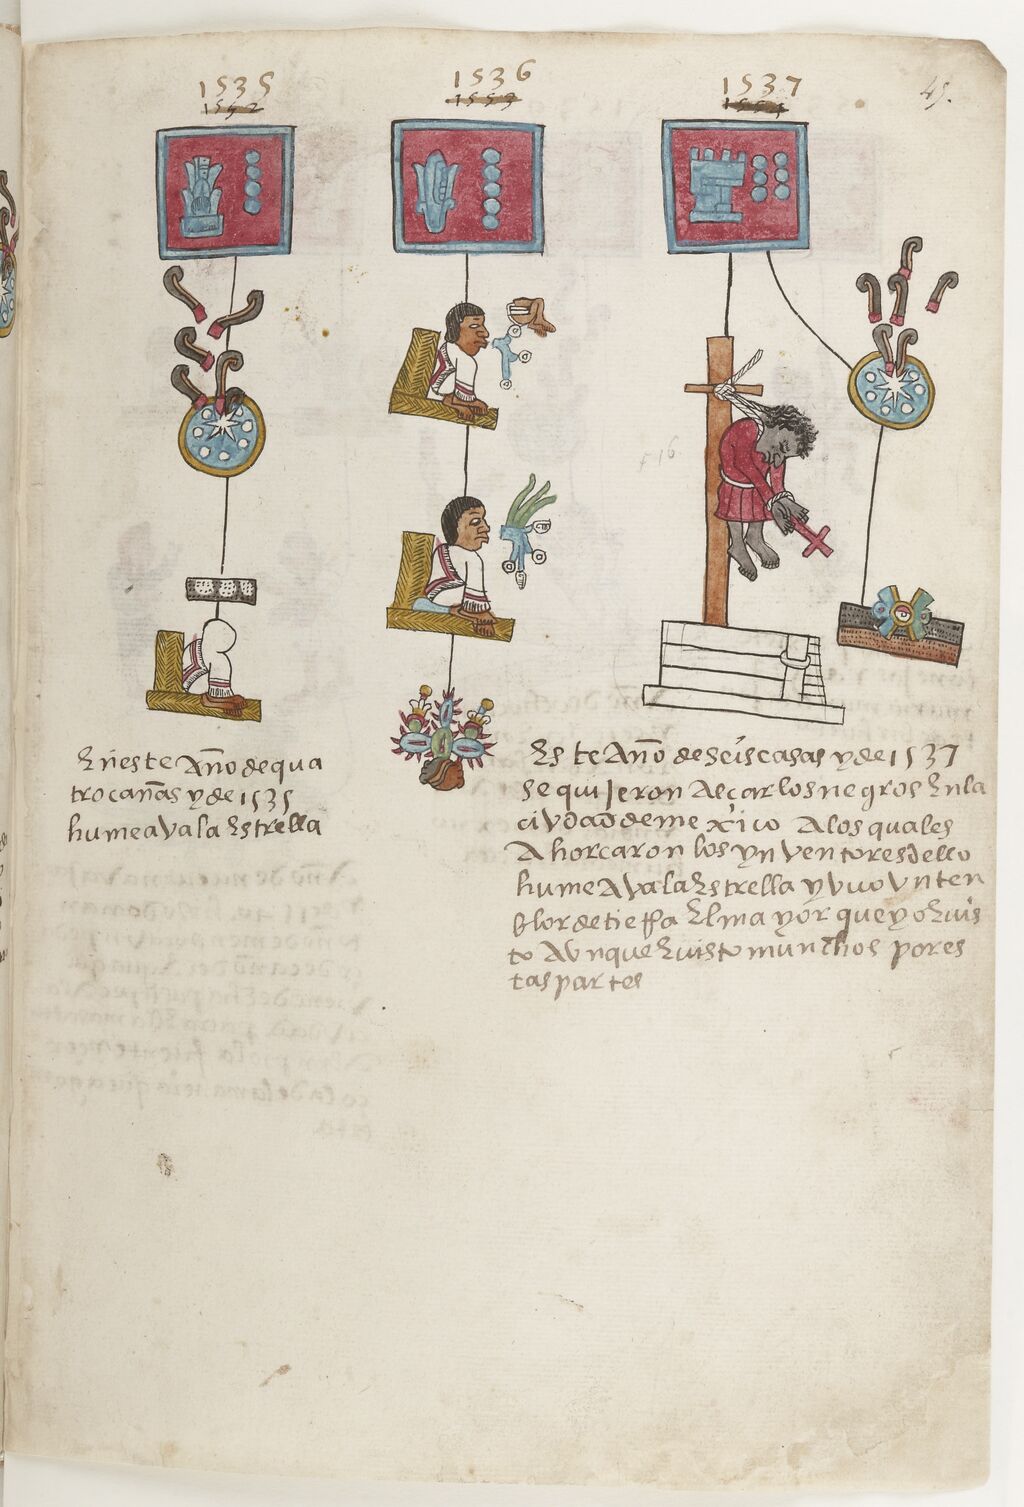 1535
1536
1537
45.
1553
Eneste Año de qua
tro cañas y de 1535
humeava la Estrella
Este Año de seis casas y de 1537
se quijeron Alcar los negros En la
ciudad de mexico A los quales
Ahorcaron los ynventores dello
humeAva la Estrella y vuo vn ten
blor de tierra El mayor que yo E uis
to Avnque E uisto munchos por es
tas partes